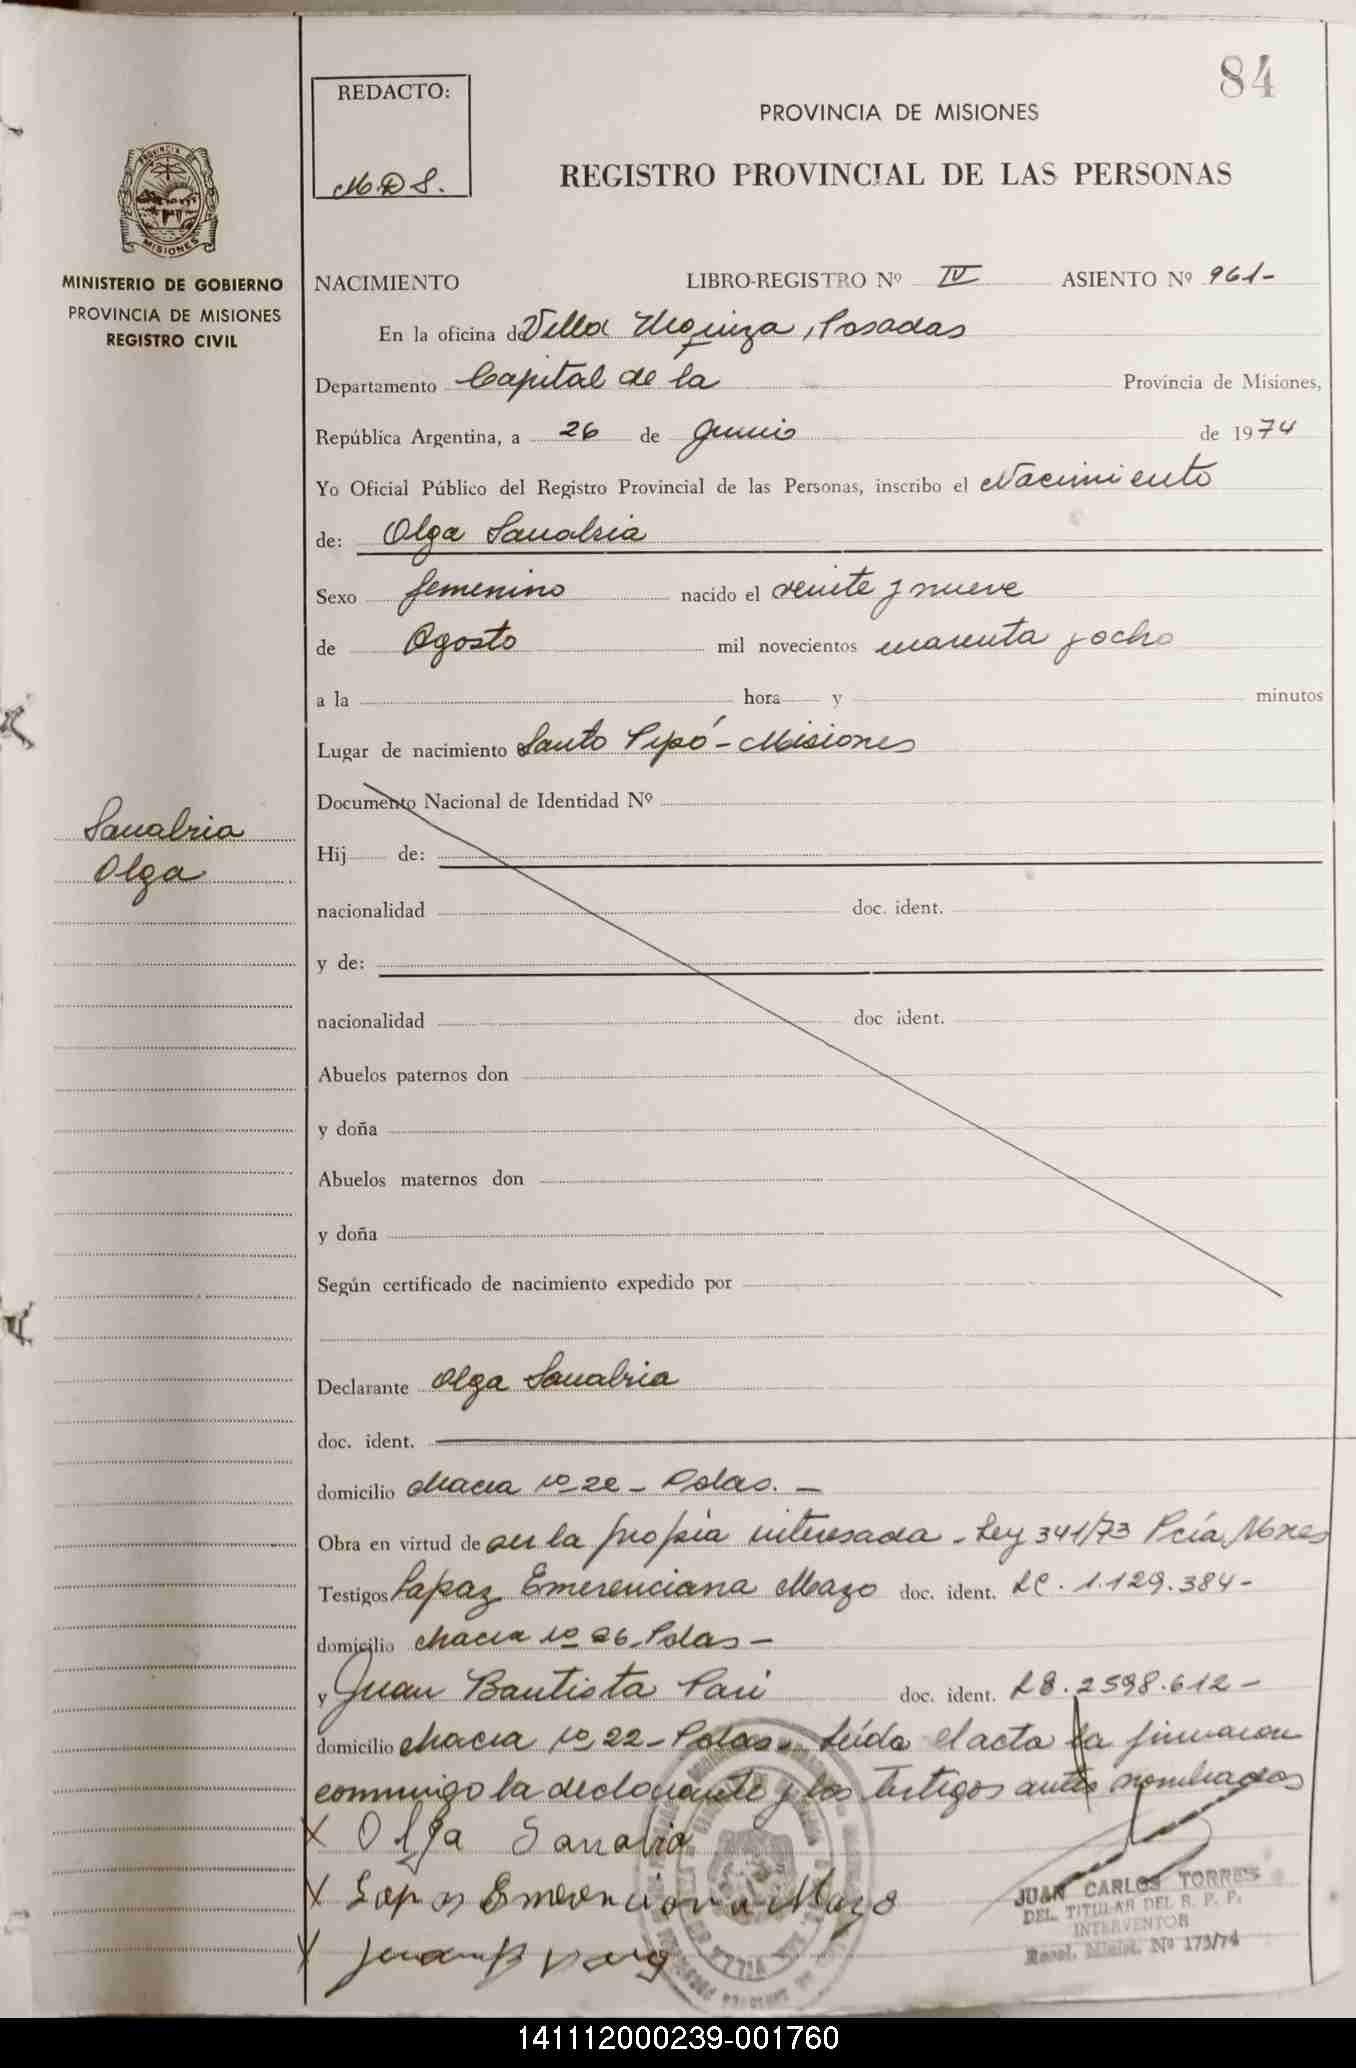 84
REDACTO:
M.D.S.
PROVINCIA DE MISIONES
REGISTRO PROVINCIAL DE LAS PERSONAS
PROVINCIA DE
MISIONES
MINISTERIO DE GOBIERNO
PROVINCIA DE MISIONES
REGISTRO CIVIL
NACIMIENTO LIBRO-REGISTRO Nº IV ASIENTO Nº 961-
En la oficina de Villa Urquiza, Posadas
Departamento Capital de la Provincia de Misiones,
República Argentina, a 26 de Junio de 1974
Yo Oficial Público del Registro Provincial de las Personas, inscribo el Nacimiento
de: Olga Sanabria
Sexo femenino nacido el veinte y nueve
de Agosto mil novecientos cuarenta y ocho
a la hora y minutos
Lugar de nacimiento Santo Pipó - Misiones
Documento Nacional de Identidad Nº
Sanabria
Olga
Hij de:
nacionalidad doc. ident.
y de:
nacionalidad doc ident.
Abuelos paternos don
y doña
Abuelos maternos don
y doña
Según certificado de nacimiento expedido por
Declarante Olga Sanabria
doc. ident.
domicilio chacra nº 22 - Pdas. -
Obra en virtud de ser la propia interesada - Ley 341/73 Pcía Mnes
Testigos Lapaz Emerenciana Mazo doc. ident. LC. 1.129.384-
domicilio chacra nº 26 Pdas -
y Juan Bautista doc. ident. 2598.612 -
domicilio chacra nº 22 - Pdas. Leída el acta la firmaron
conmigo la declarante y los testigos antes nombrados
X Olga Sanabria
X Emerenciana Mazo
X
JUAN CARLOS TORRES
DEL. TITULAR DEL R. P. P.
INTERVENTOR
Resol. Minist. Nº 173/74
141112000239-001760